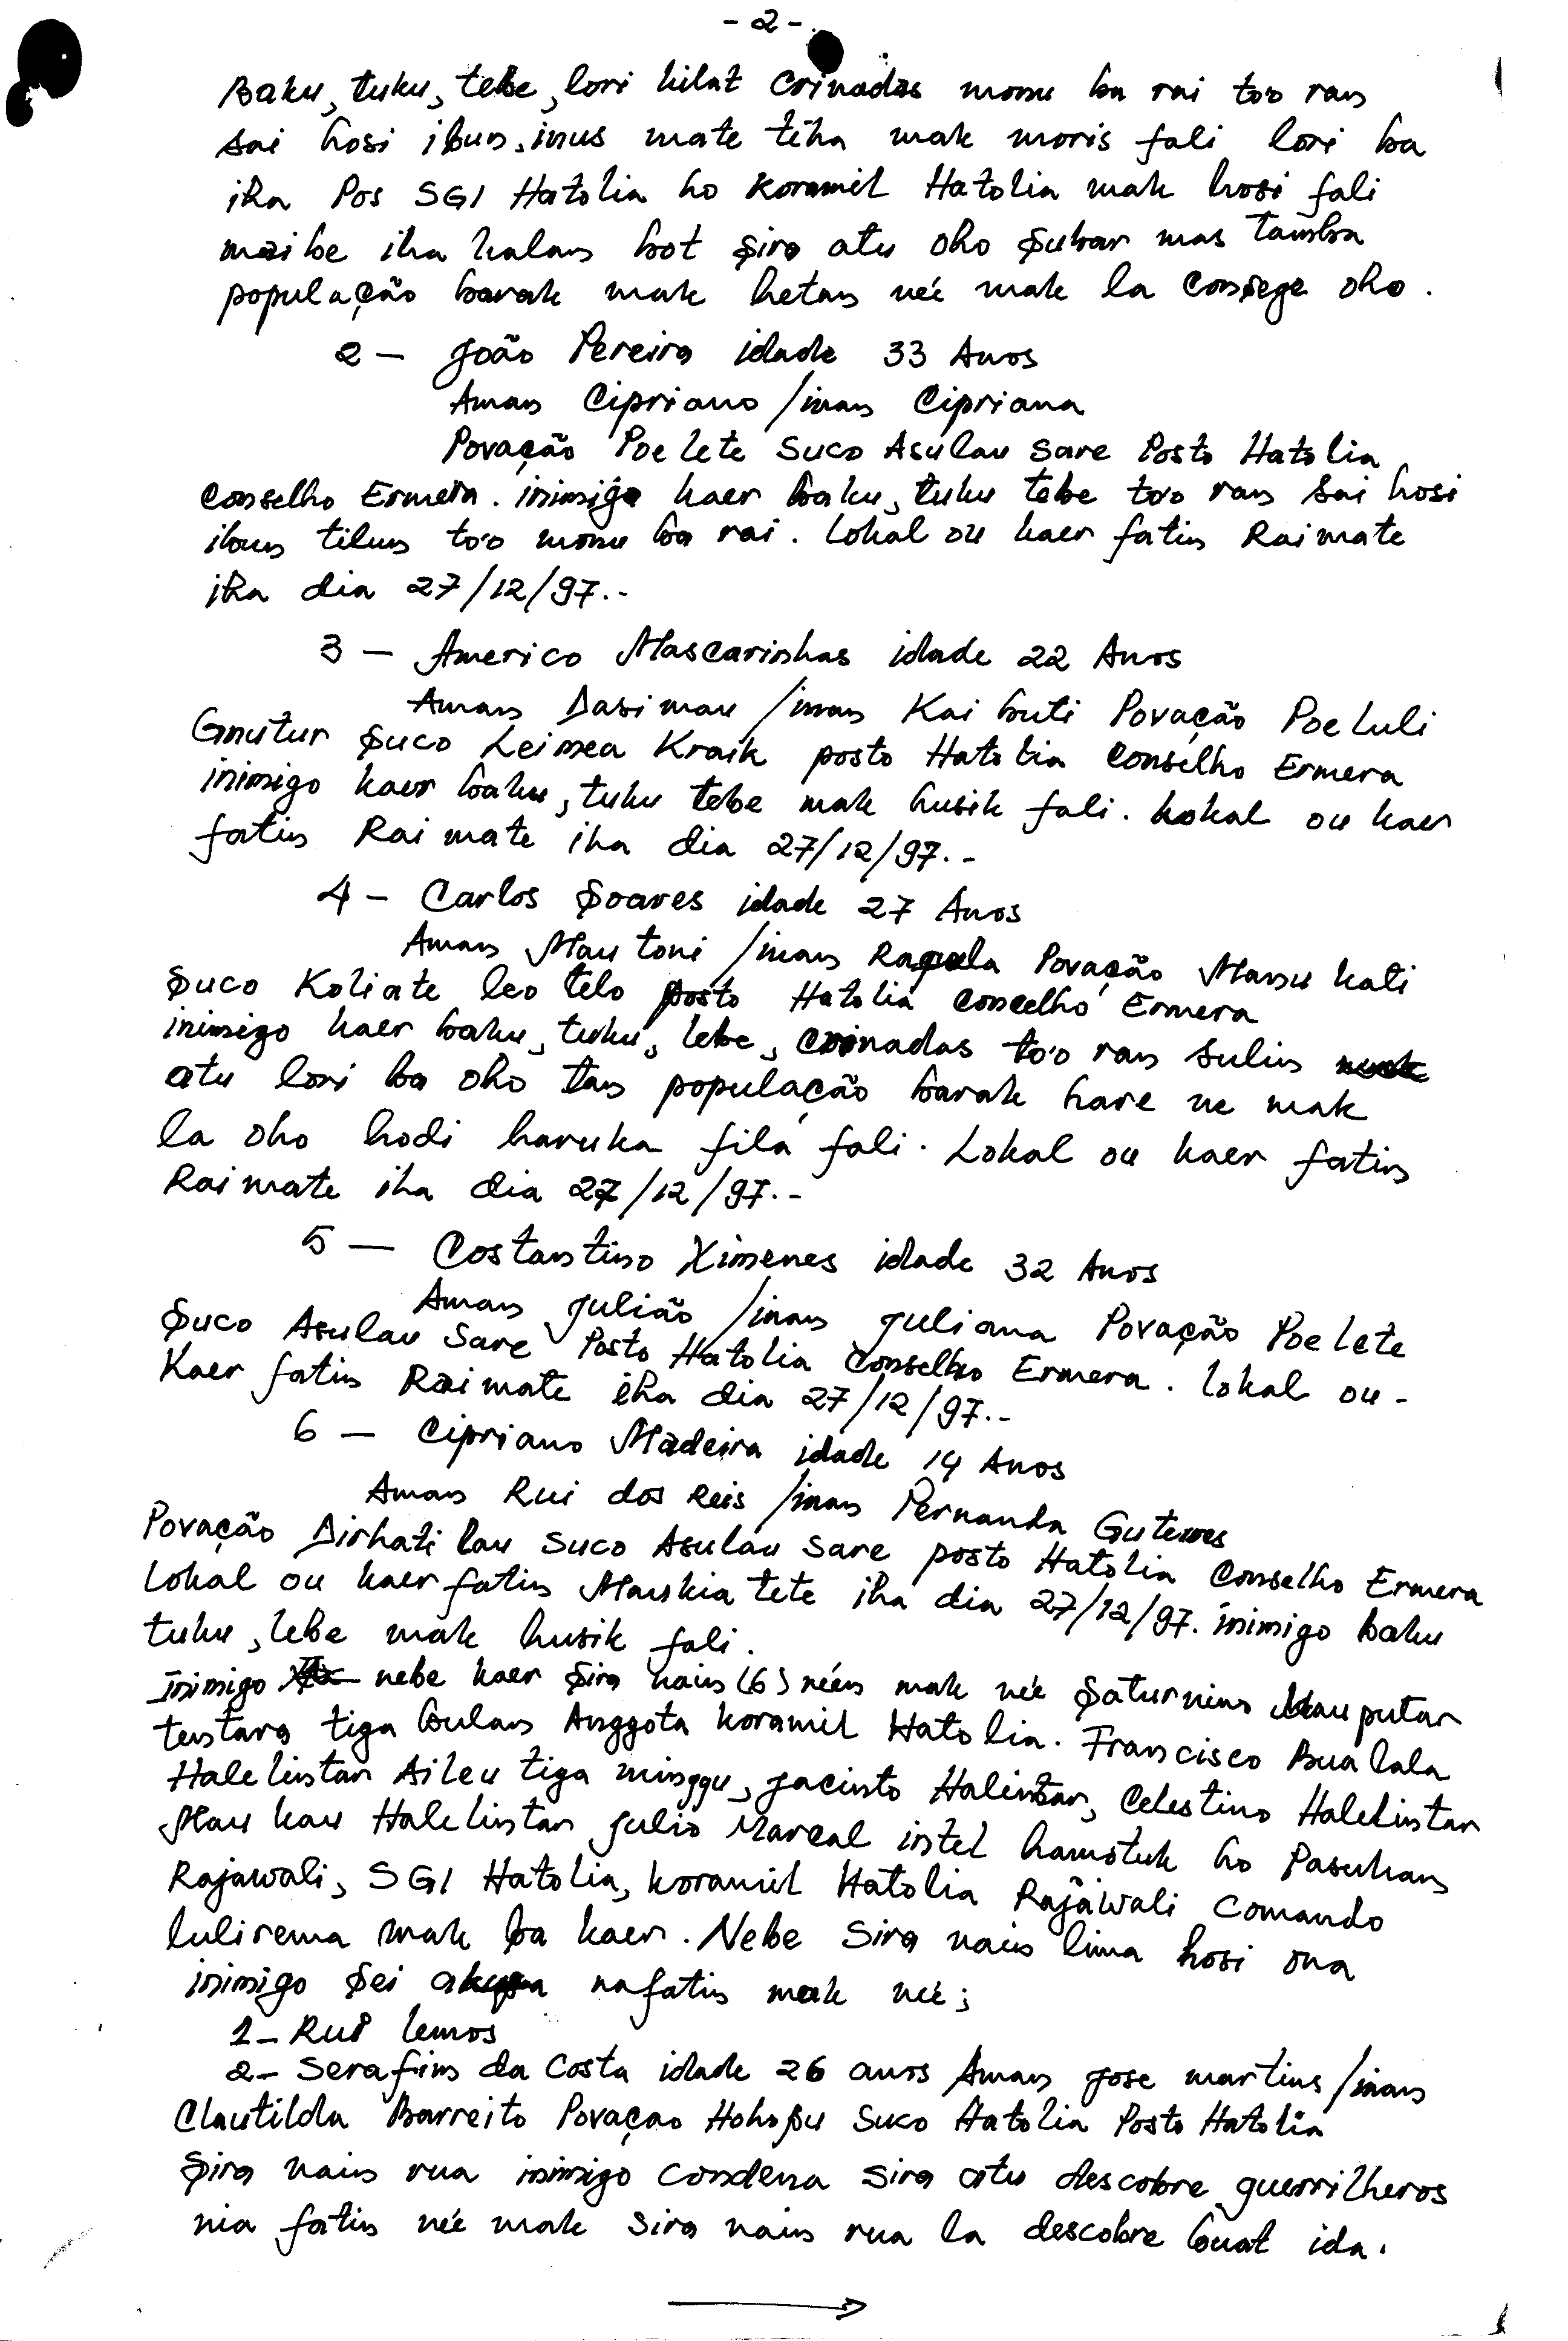 - 2 -
Baku, tuku, tebe, lori kilat Coinadas monu ba rai too ran
Sai hosi ibun, inus mate tiha mak moris fali lori ba
iha Pos SGI Hatolia ho Koramil Hatolia mak hosi fali
maibe iha kalan bot sira atu oho subar mas tamba
população barak mak hetan neé mak la consege oho.
2 - João Pereira idade 33 Anos
Aman Cipriano / inan Cipriana
Povação Poelete Suco Asulau Sare Posto Hatolia
Conselho Ermera. inimigo kaer baku, tuku tebe too ran sai hosi
ibun tilun to'o monu ba rai. Lokal ou kaer fatin Raimate
iha dia 27/12/97.-
3 - Americo Mascarinhas idade 22 Anos
Aman Dasi mau / inan Kai buti Povação Poeluli
Gnutur Suco Leimea Kraik posto Hatolia Conselho Ermera
inimigo kaer baku, tuku tebe mak husik fali. Lokal ou kaer
fatin Raimate iha dia 27/12/97.-
4 - Carlos Soares idade 27 Anos
Aman Mau toni / inan Raquela Povação Manu kati
Suco Koliate leo telo posto Hatolia Concelho Ermera
inimigo kaer baku, tuku, lebe, coinadas to'o ran sulin
atu lori ba oho tan população barak hare ne mak
la oho hodi haruka fila fali. Lokal ou kaer fatin
Raimate iha dia 27/12/97.-
5 - Costantino Ximenes idade 32 Anos
Aman Julião / inan Juliana Povação Poelete
Suco Asulau Sare Posto Hatolia Conselho Ermera. Lokal ou -
Kaer fatin Raimate iha dia 27/12/97.-
6 - Cipriano Madeira idade 14 Anos
Aman Rui dos Reis / inan Pernanda Guterres
Povação Dirhati lau Suco Asulau Sare posto Hatolia Conselho Ermera
Lokal ou kaer fatin Mauskia tete iha dia 27/12/97. inimigo baku
tuku, lebe mak husik fali.
inimigo nebe kaer sira nain (6) néen mak neé Saturnino Mauputar
tentara tiga bulan Anggota koramil Hatolia. Francisco Bualala
Halelintar Aileu tiga minggu, Jacinto Halintar, Celestino Halelintar
Mau kau Halelintar Julio Marcal intel hamotuk ho Pasukan
Rajawali, SGI Hatolia, koramil Hatolia Rajawali Comando
lulirema mak ba kaer. Nebe Sira nain lima hosi ona
inimigo sei nafatin mak neé;
1- Rui lemos
2- Serafim da Costa idade 26 anos Aman Jose martins / inan
Clautilda Barreito Povaçao Hohopu Suco Hatolia Posto Hatolia
Sira nain rua inimigo condena sira atu descobre guerrilheros
nia fatin neé mak sira nain rua la descobre buat ida.